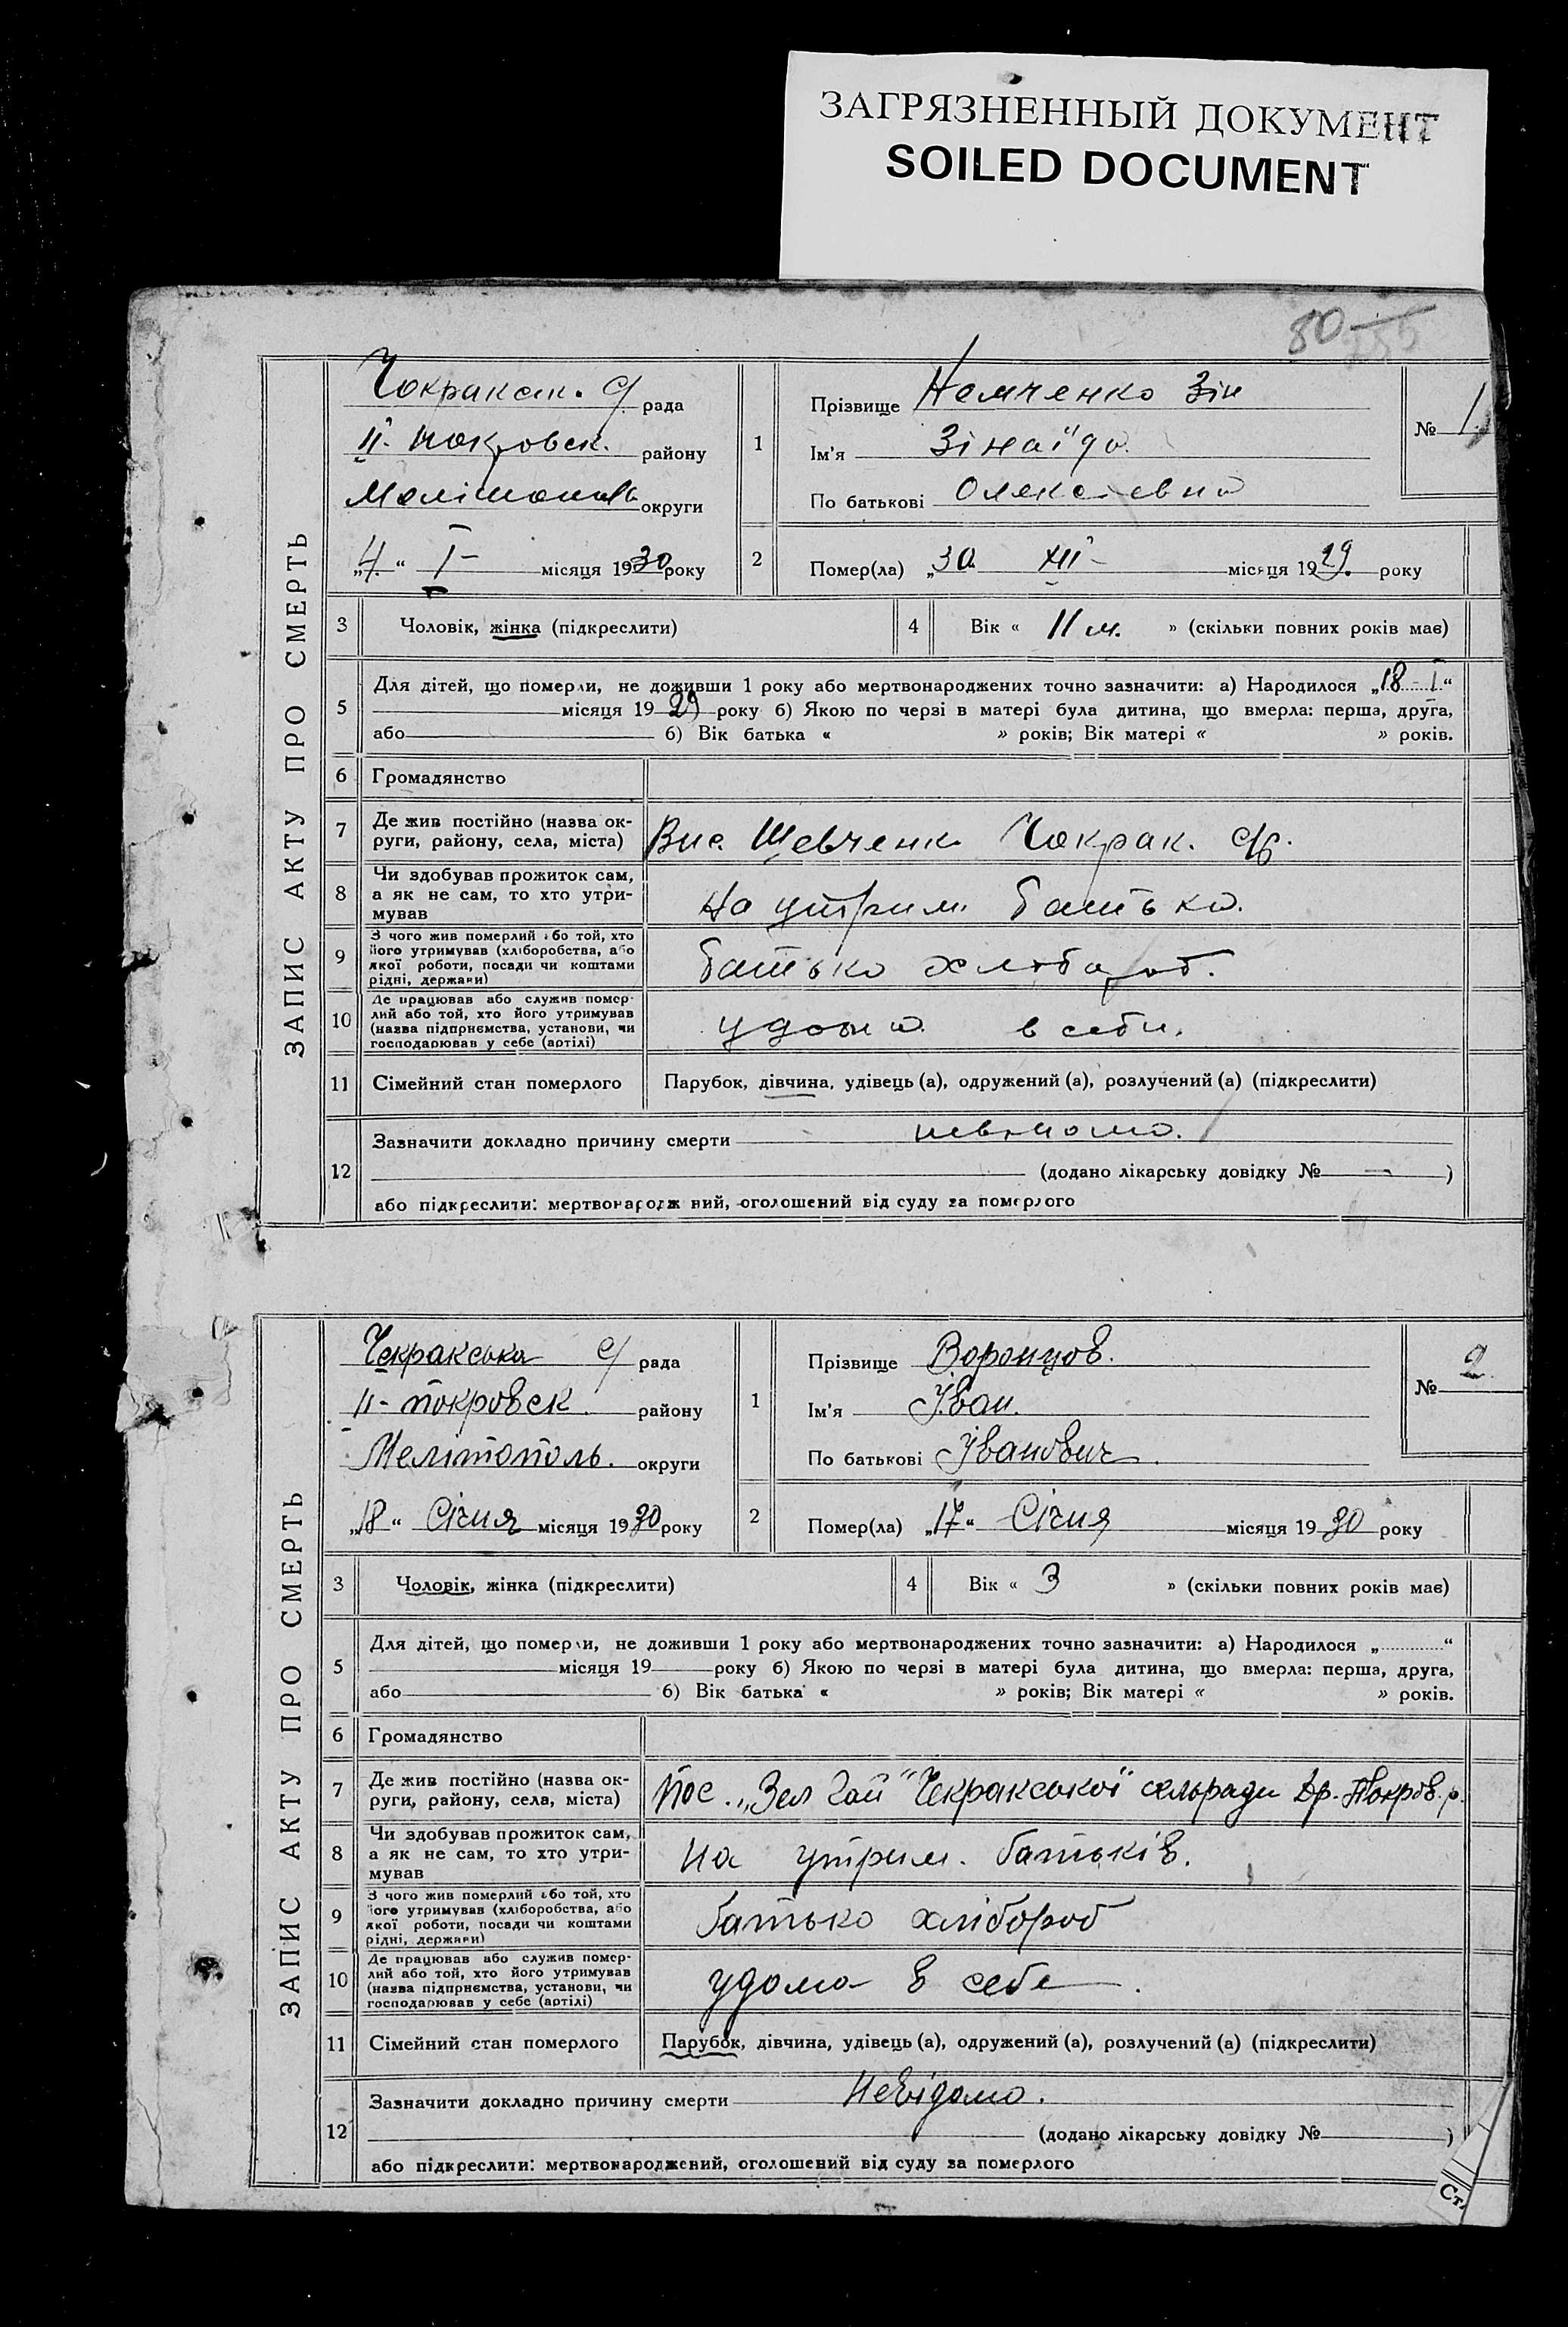 ЗАГРЯЗНЕННЫЙ ДОКУМЕНТ
SOILED DOCUMENT
80
ЗАПИС АКТУ ПРО СМЕРТЬ
Чокракск. с/ рада
II- покровск. району
округи
„4.“ I- місяця 1930 року
1
Прізвище Немченко Зін
Ім'я Зінаїда.
По батькові Олексіевна
№ 1.
2
Помер(ла) „30 XII- місяця 1929. року
3 Чоловік, жінка (підкреслити)
4 Вік « 11 м. » (скільки повних років має)
5
Для дітей, що померли, не доживши 1 року або мертвонароджених точно зазначити: а) Народилося „18-I“
місяця 1929 року б) Якою по черзі в матері була дитина, що вмерла: перша, друга,
або б) Вік батька « » років; Вік матері « » років.
6 Громадянство
7 Де жив постійно (назва ок-
руги, району, села, міста)
Вис. Шевченк Чокрак. с/р.
8 Чи здобував прожиток сам,
а як не сам, то хто утри-
мував
на утрим. батька.
9 З чого жив померлий або той, хто
його утримував (хліборобства, або
якої роботи, посади чи коштами
рідні, держави)
батько хлібороб.
10 Де працював або служив помер-
лий або той, хто його утримував
(назва підприємства, установи, чи
господарював у себе (артілі)
удома в себи.
11 Сімейний стан померлого
Парубок, дівчина, удівець (а), одружений (а), розлучений (а) (підкреслити)
12 Зазначити докладно причину смерти
(додано лікарську довідку № — )
або підкреслити: мертвонародж ний, оголошений від суду за померлого
ЗАПИС АКТУ ПРО СМЕРТЬ
Чекракська с/ рада
II- покровск. району
Мелітополь. округи
„18“ Січня місяця 1930 року
1
Прізвище Воронцов.
Ім'я Іван.
По батькові Іванович.
№ 2
2
Помер(ла) „17“ Січня місяця 1930 року
3 Чоловік, жінка (підкреслити)
4 Вік « 3 » (скільки повних років має)
5
Для дітей, що померли, не доживши 1 року або мертвонароджених точно зазначити: а) Народилося „ “
місяця 19 року б) Якою по черзі в матері була дитина, що вмерла: перша, друга,
або б) Вік батька « » років; Вік матері « » років.
6 Громадянство
7 Де жив постійно (назва ок-
руги, району, села, міста)
Пос. „Зел Гай“ Чекракської сельради Др. Покров. р.
8 Чи здобував прожиток сам,
а як не сам, то хто утри-
мував
на утрим. батьків.
9 З чого жив померлий або той, хто
його утримував (хліборобства, або
якої роботи, посади чи коштами
рідні, держави)
батько хлібороб
10 Де працював або служив помер-
лий або той, хто його утримував
(назва підприємства, установи, чи
господарював у себе (артілі)
удома в себе.
11 Сімейний стан померлого
Парубок, дівчина, удівець (а), одружений (а), розлучений (а) (підкреслити)
12 Зазначити докладно причину смерти Невідомо.
(додано лікарську довідку № )
або підкреслити: мертвонароджений, оголошений від суду за померлого
Ст.